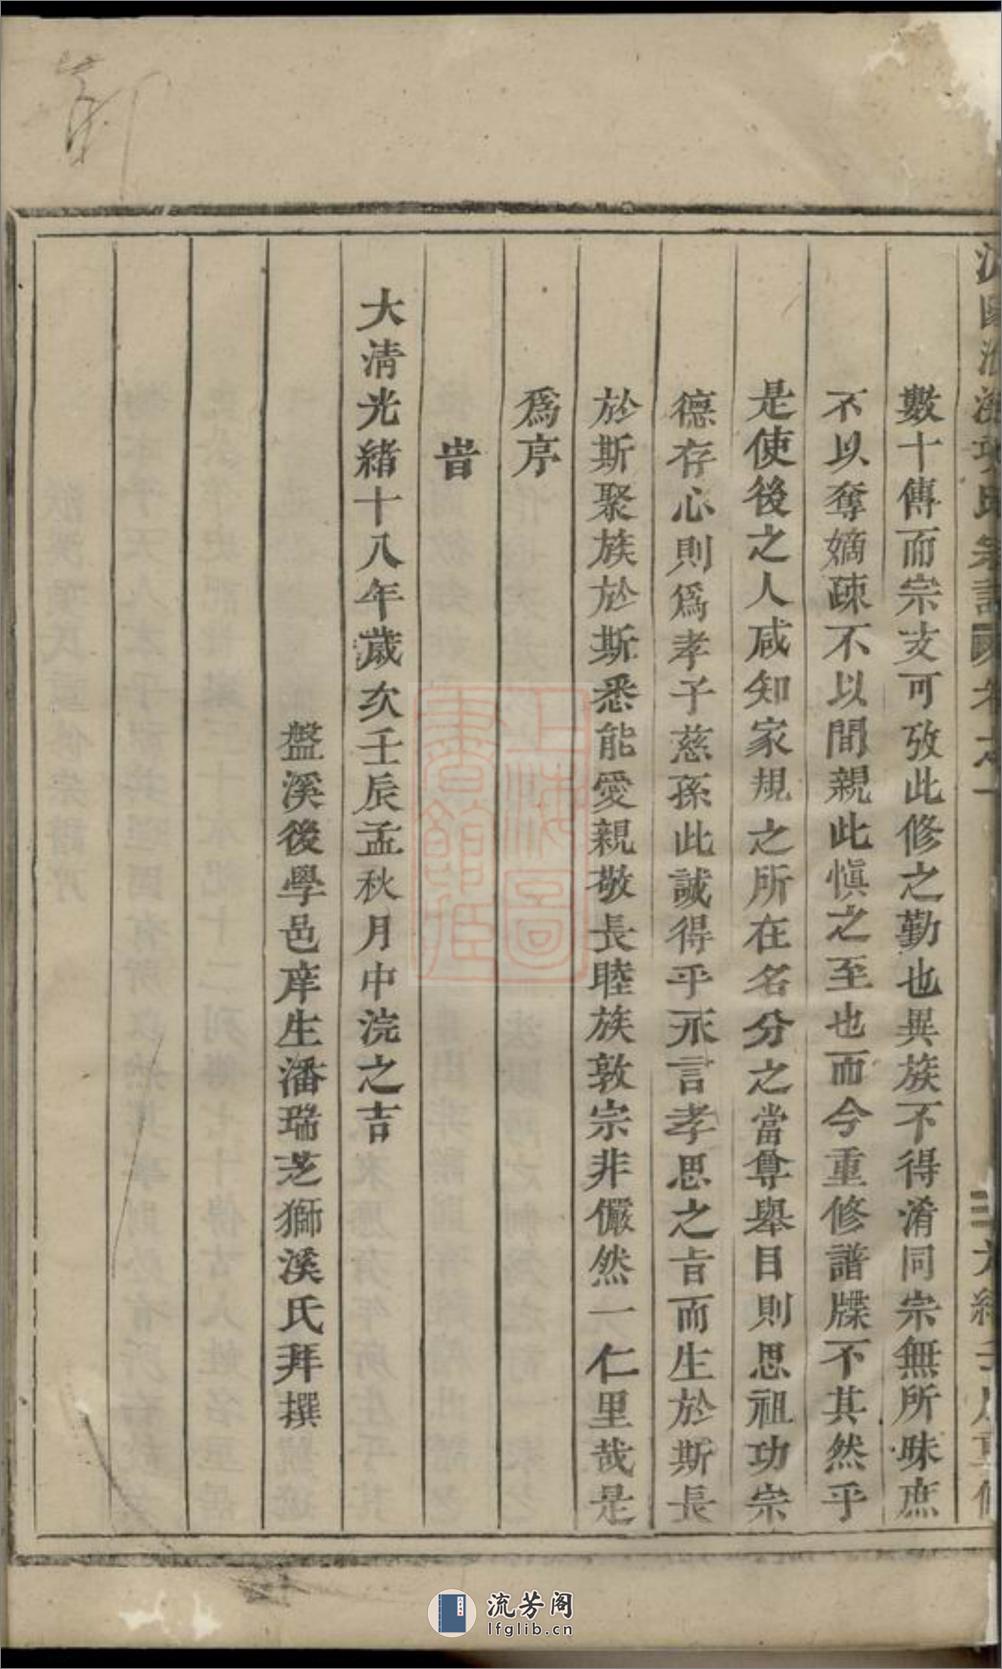 數十傳而宗支可攷此修之勤也異族不得淆同宗無所昧庶
不以奪嫡疎不以間親此慎之至也而今重修譜牒不其然乎
是使後之人咸知家規之所在名分之當尊舉目則思祖功宗
德存心則爲孝子慈孫此誠得乎永言孝思之旨而生於斯長
於斯聚族於斯悉能愛親敬長睦族敦宗非儼然一仁里哉是
爲序
旹
大清光緒十八年歲次壬辰孟秋月中浣之吉
盤溪後學邑庠生潘瑞芝獅溪氏拜撰
上海圖書館藏
流芳阁
lfglib.cn